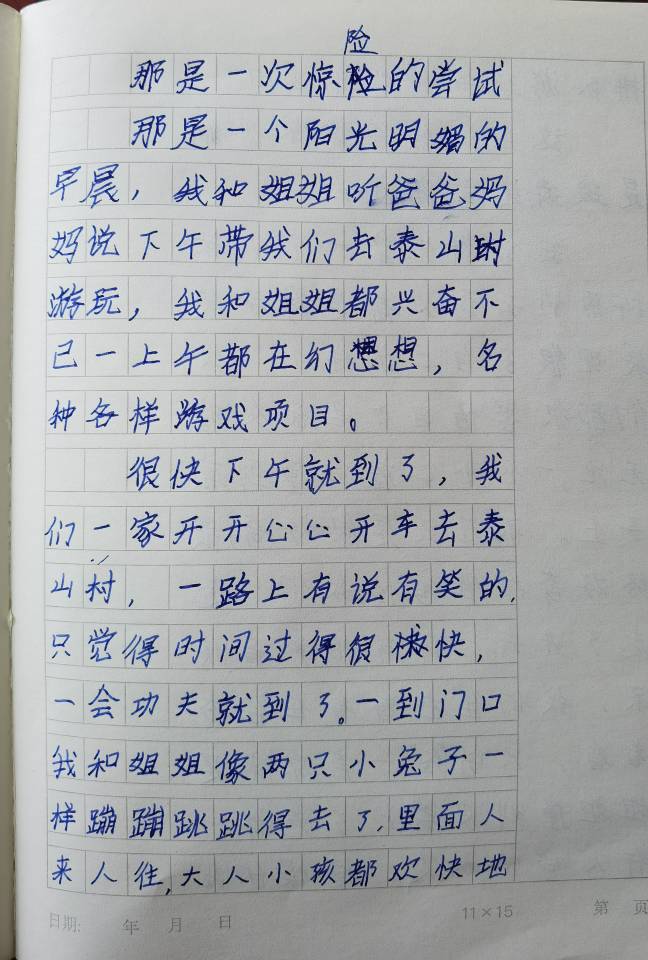 险
那是一次惊险的尝试
那是一个阳光明媚的
早晨，我和姐姐听爸爸妈
妈说下午带我们去泰山村
游玩，我和姐姐都兴奋不
已一上午都在幻想想，各
种各样游戏项目。
很快下午就到了，我
们一家开开心心开车去泰
山村，一路上有说有笑的，
只觉得时间过得很快，
一会功夫就到了。一到门口
我和姐姐像两只小兔子一
样蹦蹦跳跳得去了，里面人
来人往，大人小孩都欢快地
日期： 年 月 日
11×15
第 页